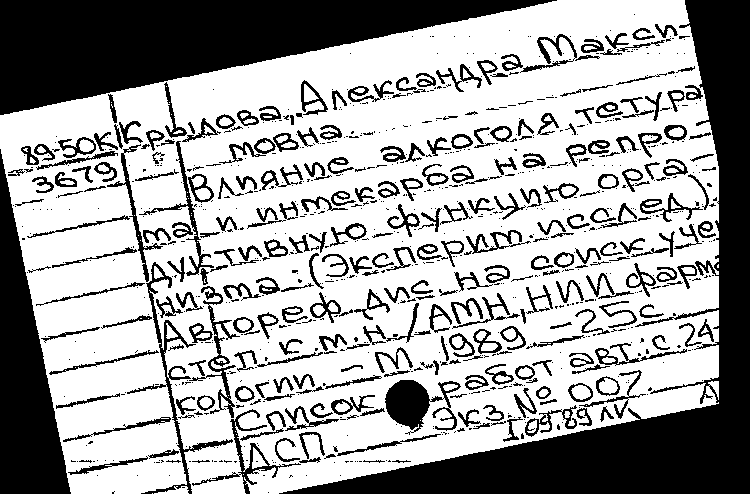 Крылова, Александра Макси-
89-50К
3679
мовна.
Влияние алкоголя, тетура-
ма и интекарба на репро-
дуктивную функцию орга-
низма: (Эксперим. исслед.):
Автореф. дис. на соиск. уче
степ. к.м.н. /АМН, НИИ фарма
кологии. – М., 1989. – 25с.
Список работ авт.: с. 24-
ДСП. Экз. № 007.
1.09.89 ЛК